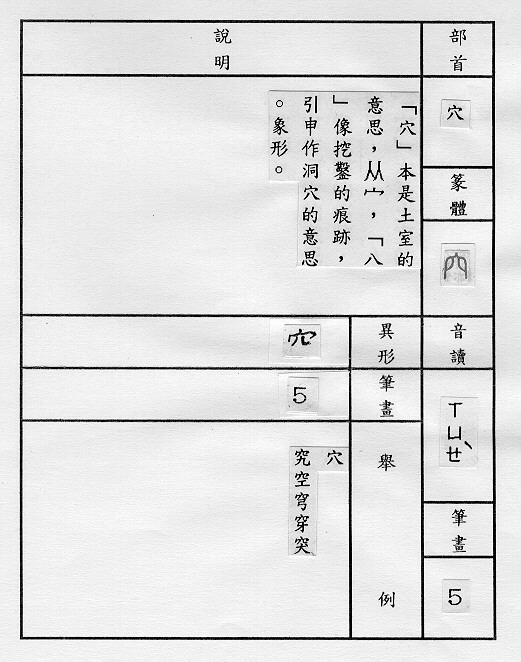 部首
穴
篆體
音讀
ㄒㄩㄝˋ
筆畫
5
說明
「穴」本是土室的
意思，从宀，「八
」像挖鑿的痕跡，
引申作洞穴的意思
。象形。
異形
筆畫
5
舉例
穴
究空穹穿突